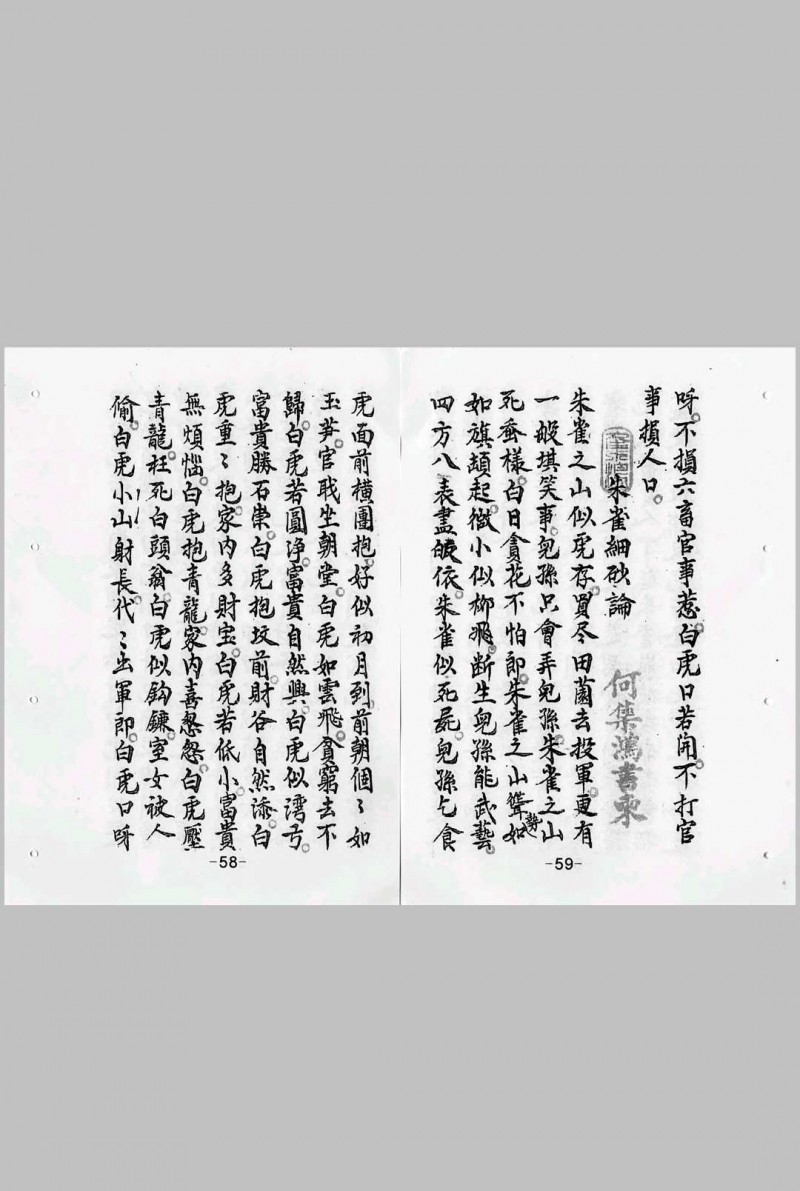 虎面前橫團抱好似初月到前朝個〻如
玉笋官戝坐朝堂白虎如雲飛貧窮去不
歸白虎若圓净富貴自然興白虎似彎弓
富貴勝石崇白虎抱坟前財谷自然添白
虎重〻抱家内多財宝白虎若低小富貴
無煩惱白虎抱青龍家内喜怱怱白虎壓
青龍枉死白頭翁白虎似鈎鐮室女被人
偷白虎小山射長代〻出軍郎白虎口呀
-58-
呀不損六畜官事惹白虎口若開不打官
事損人口
朱雀細砂論
何集鴻書柬
朱雀之山似虎存買尽田薗去投軍更有
一般堪笑事兒孫只會弄兒孫朱雀之山
死蚕樣白日貪花不怕郎朱雀之山聳如
勢
如旗頡起微小似柳飛断生兒孫能武藝
四方八表盡皈依朱雀似死屍兒孫乞食
-59-